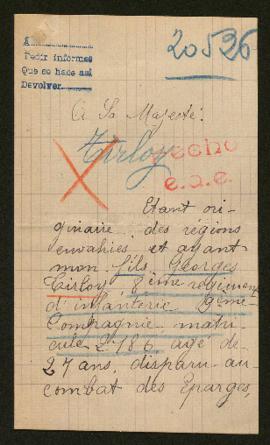 A
Pedir informes
Que se hace así
Devolver
20526
A Sa Majesté:
Tirloy
Hecho
e.a.e.
Etant ori-
ginaire des régions
envahies et ayant
mon fils Georges
Tirloy 8ème régiment
d'infanterie 9ème
Compagnie, matri-
cule 186 agé de
27 ans, disparu au
combat des Eparges,